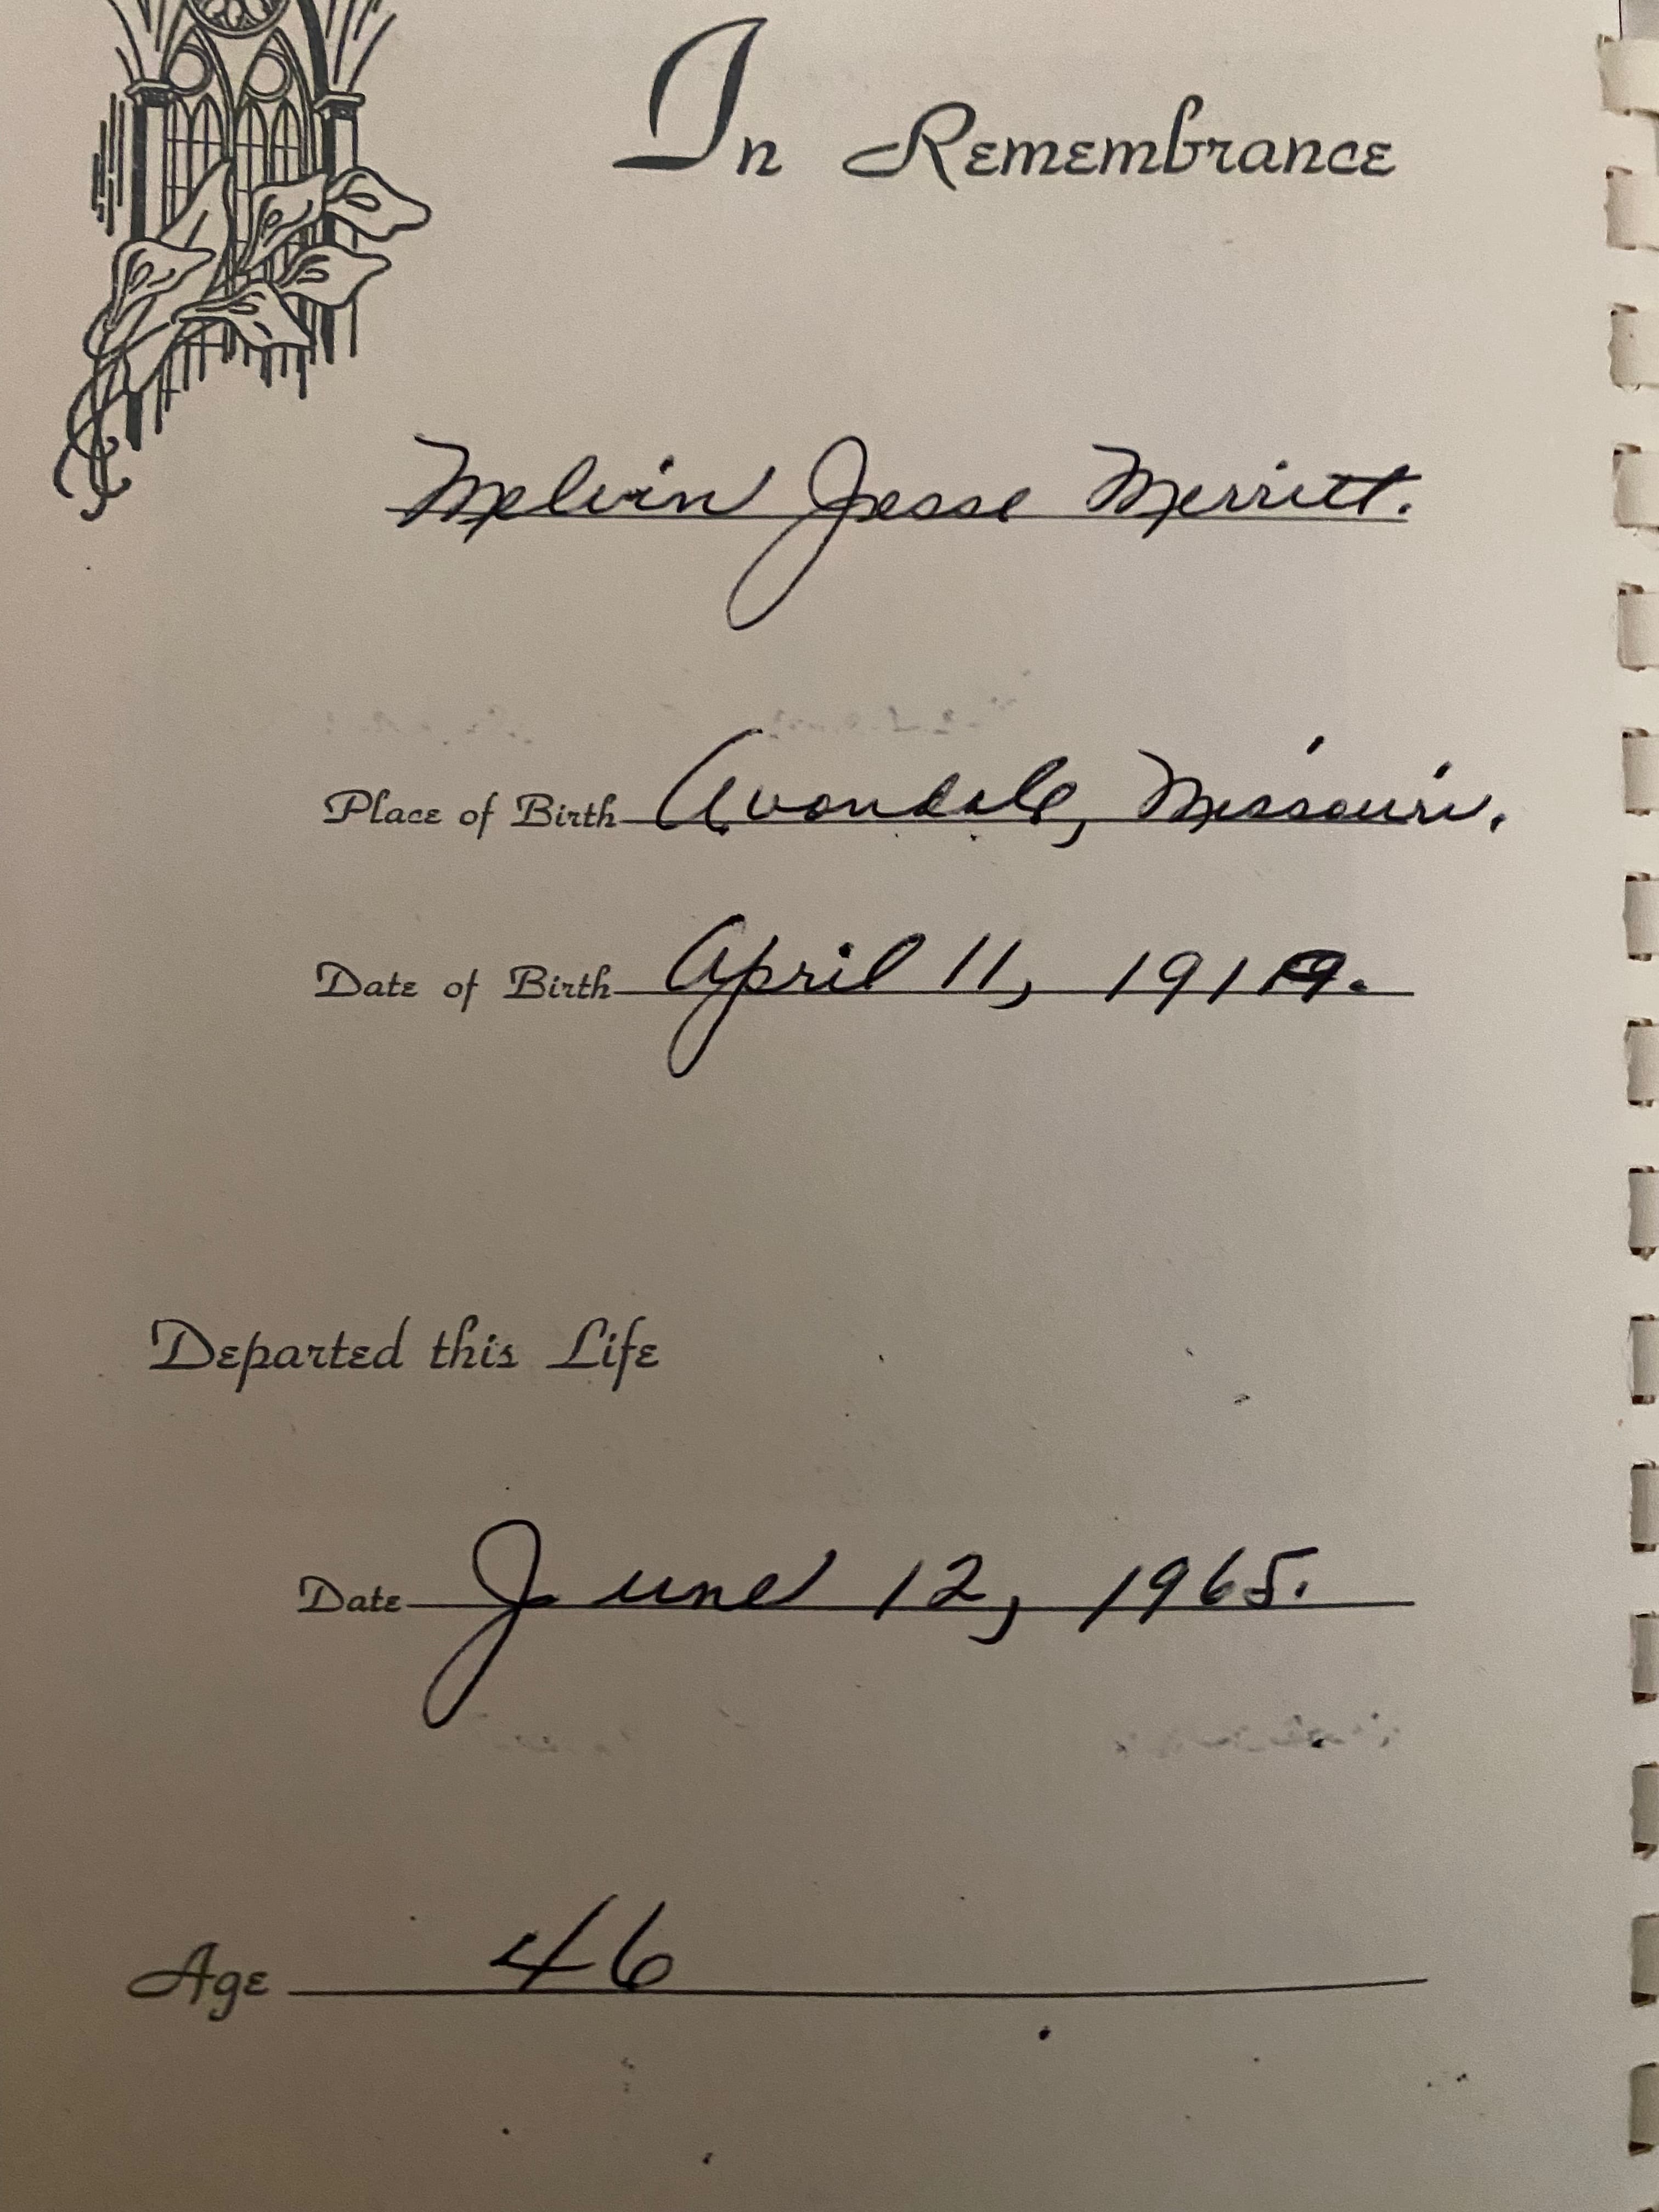 In Remembrance
Melvin Jesse Merritt.
Place of Birth Avondale, Missouri.
Date of Birth April 11, 1919.
Departed this Life
Date June 12, 1965.
Age 46